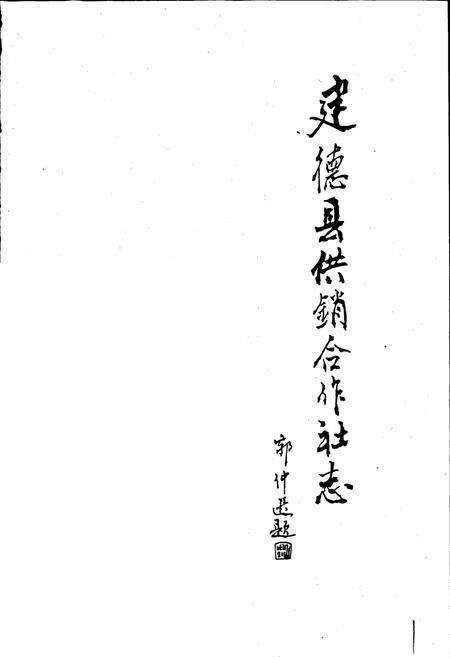 建德县供銷合作社志
郭仲选题